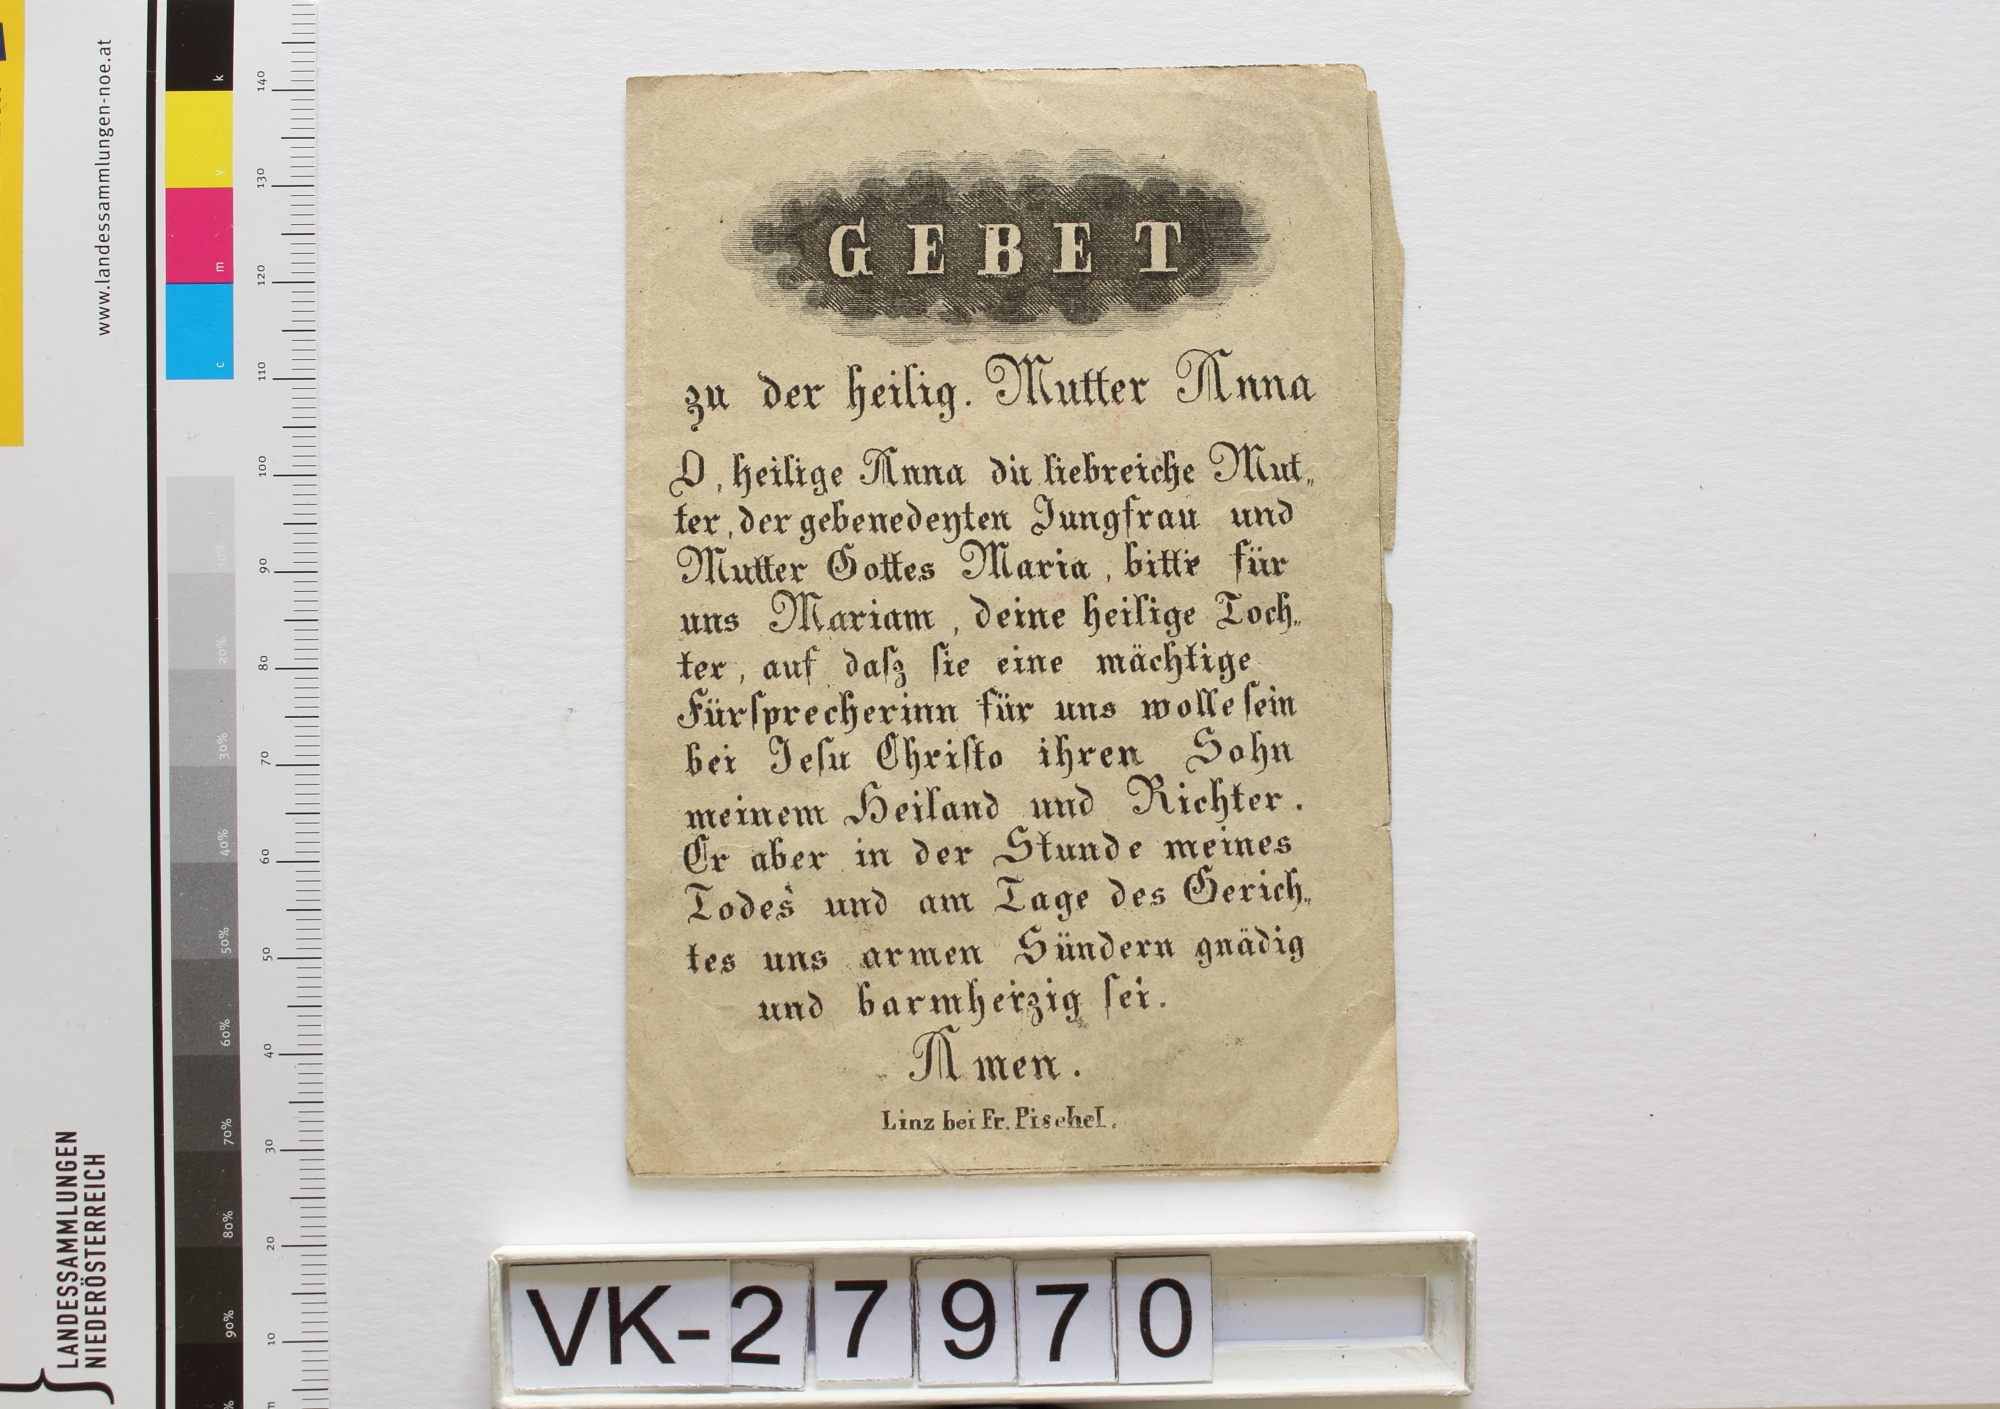 GEBET
zu der heilig. Mutter Anna
O, heilige Anna du liebreiche Mut„
ter, der gebenedeyten Jungfrau und
Mutter Gottes Maria, bitte für
uns Mariam, deine heilige Toch„
ter, auf daſz ſie eine mächtige
Fürſprecherinn für uns wolle ſein
bei Jeſu Chriſto ihren Sohn
meinem Heiland und Richter.
Er aber in der Stunde meines
Todes und am Tage des Gerich„
tes uns armen Sündern gnädig
und barmherzig ſei.
Amen.
Linz bei Fr. Pischel.
VK-27970
www.landessammlungen-noe.at
LANDESSAMMLUNGEN
NIEDERÖSTERREICH
k
y
m
c
10%
20%
30%
40%
50%
60%
70%
80%
90%
140
130
120
110
100
90
80
70
60
50
40
30
20
10